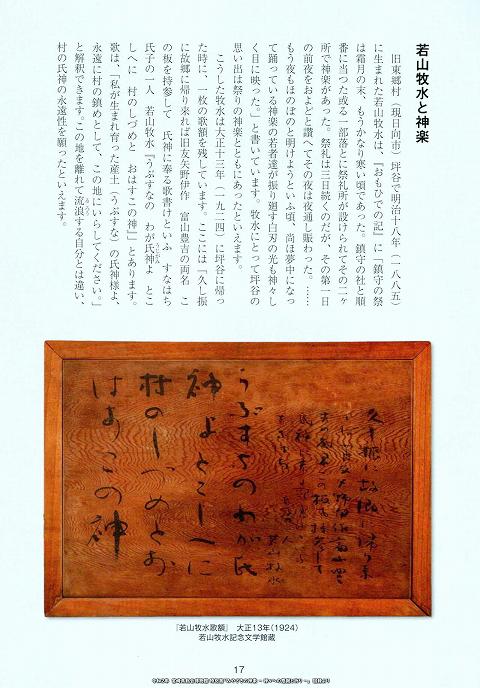 若山牧水と神楽
旧東郷村（現日向市）坪谷で明治十八年（一八八五）
に生まれた若山牧水は、『おもひでの記』に「鎮守の祭
は霜月の末、もうかなり寒い頃であった。鎮守の社と順
番に当つた或る一部落とに祭礼所が設けられてその二ヶ
所で神楽があった。祭礼は三日続くのだが、その第一日
の前夜をおよどと讃へてその夜は夜通し賑わった。……
もう夜もほのぼのと明けようといふ頃、尚ほ夢中になっ
て踊っている神楽の若者達が振り廻す白刃の光も神々し
く目に映った。」と書いています。牧水にとって坪谷の
思い出は祭りの神楽とともにあったといえます。
こうした牧水は大正十三年（一九二四）に坪谷に帰っ
た時に、一枚の歌額を残しています。ここには『久し振
に故郷に帰り来れば旧友矢野伊作 富山豊吉の両名 こ
の板を持参して 氏神に奉る歌書けといふ すなはち
氏子の一人 若山牧水『うぶすなの わが氏神よ とこ
しへに 村のしづめと おはすこの神』とあります。
歌は、「私が生まれ育った産土（うぶすな）の氏神様よ、
永遠に村の鎮めとして、この地にいらしてください。」
と解釈できます。この地を離れて流浪する自分とは違い、
村の氏神の永遠性を願ったといえます。
久し振に故郷に帰り来
この板を持参して
若山牧水
うぶすなのわが氏
神よとこしへに
村のしづめとお
はすこの神
『若山牧水歌額』 大正13年（1924）
若山牧水記念文学館蔵
17